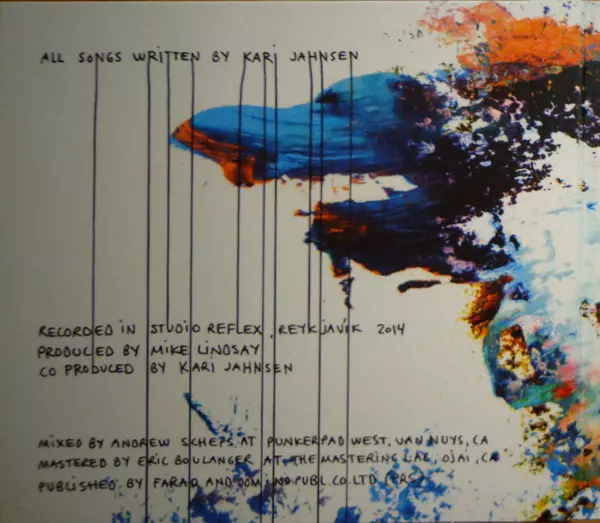 ALL SONGS WRITTEN BY KARI JAHNSEN
RECORDED IN STUDIO REFLEX, REYKJAVIK 2014
PRODUCED BY MIKE LINDSAY
CO PRODUCED BY KARI JAHNSEN
MIXED BY ANDREW SCHEPS AT PUNKERPAD WEST, VAN NUYS, CA
MASTERED BY ERIC BOULANGER AT THE MASTERING LAB, OJAI, CA
PUBLISHED BY FARAO AND DOMINO PUBL.CO.LTD (PRS)